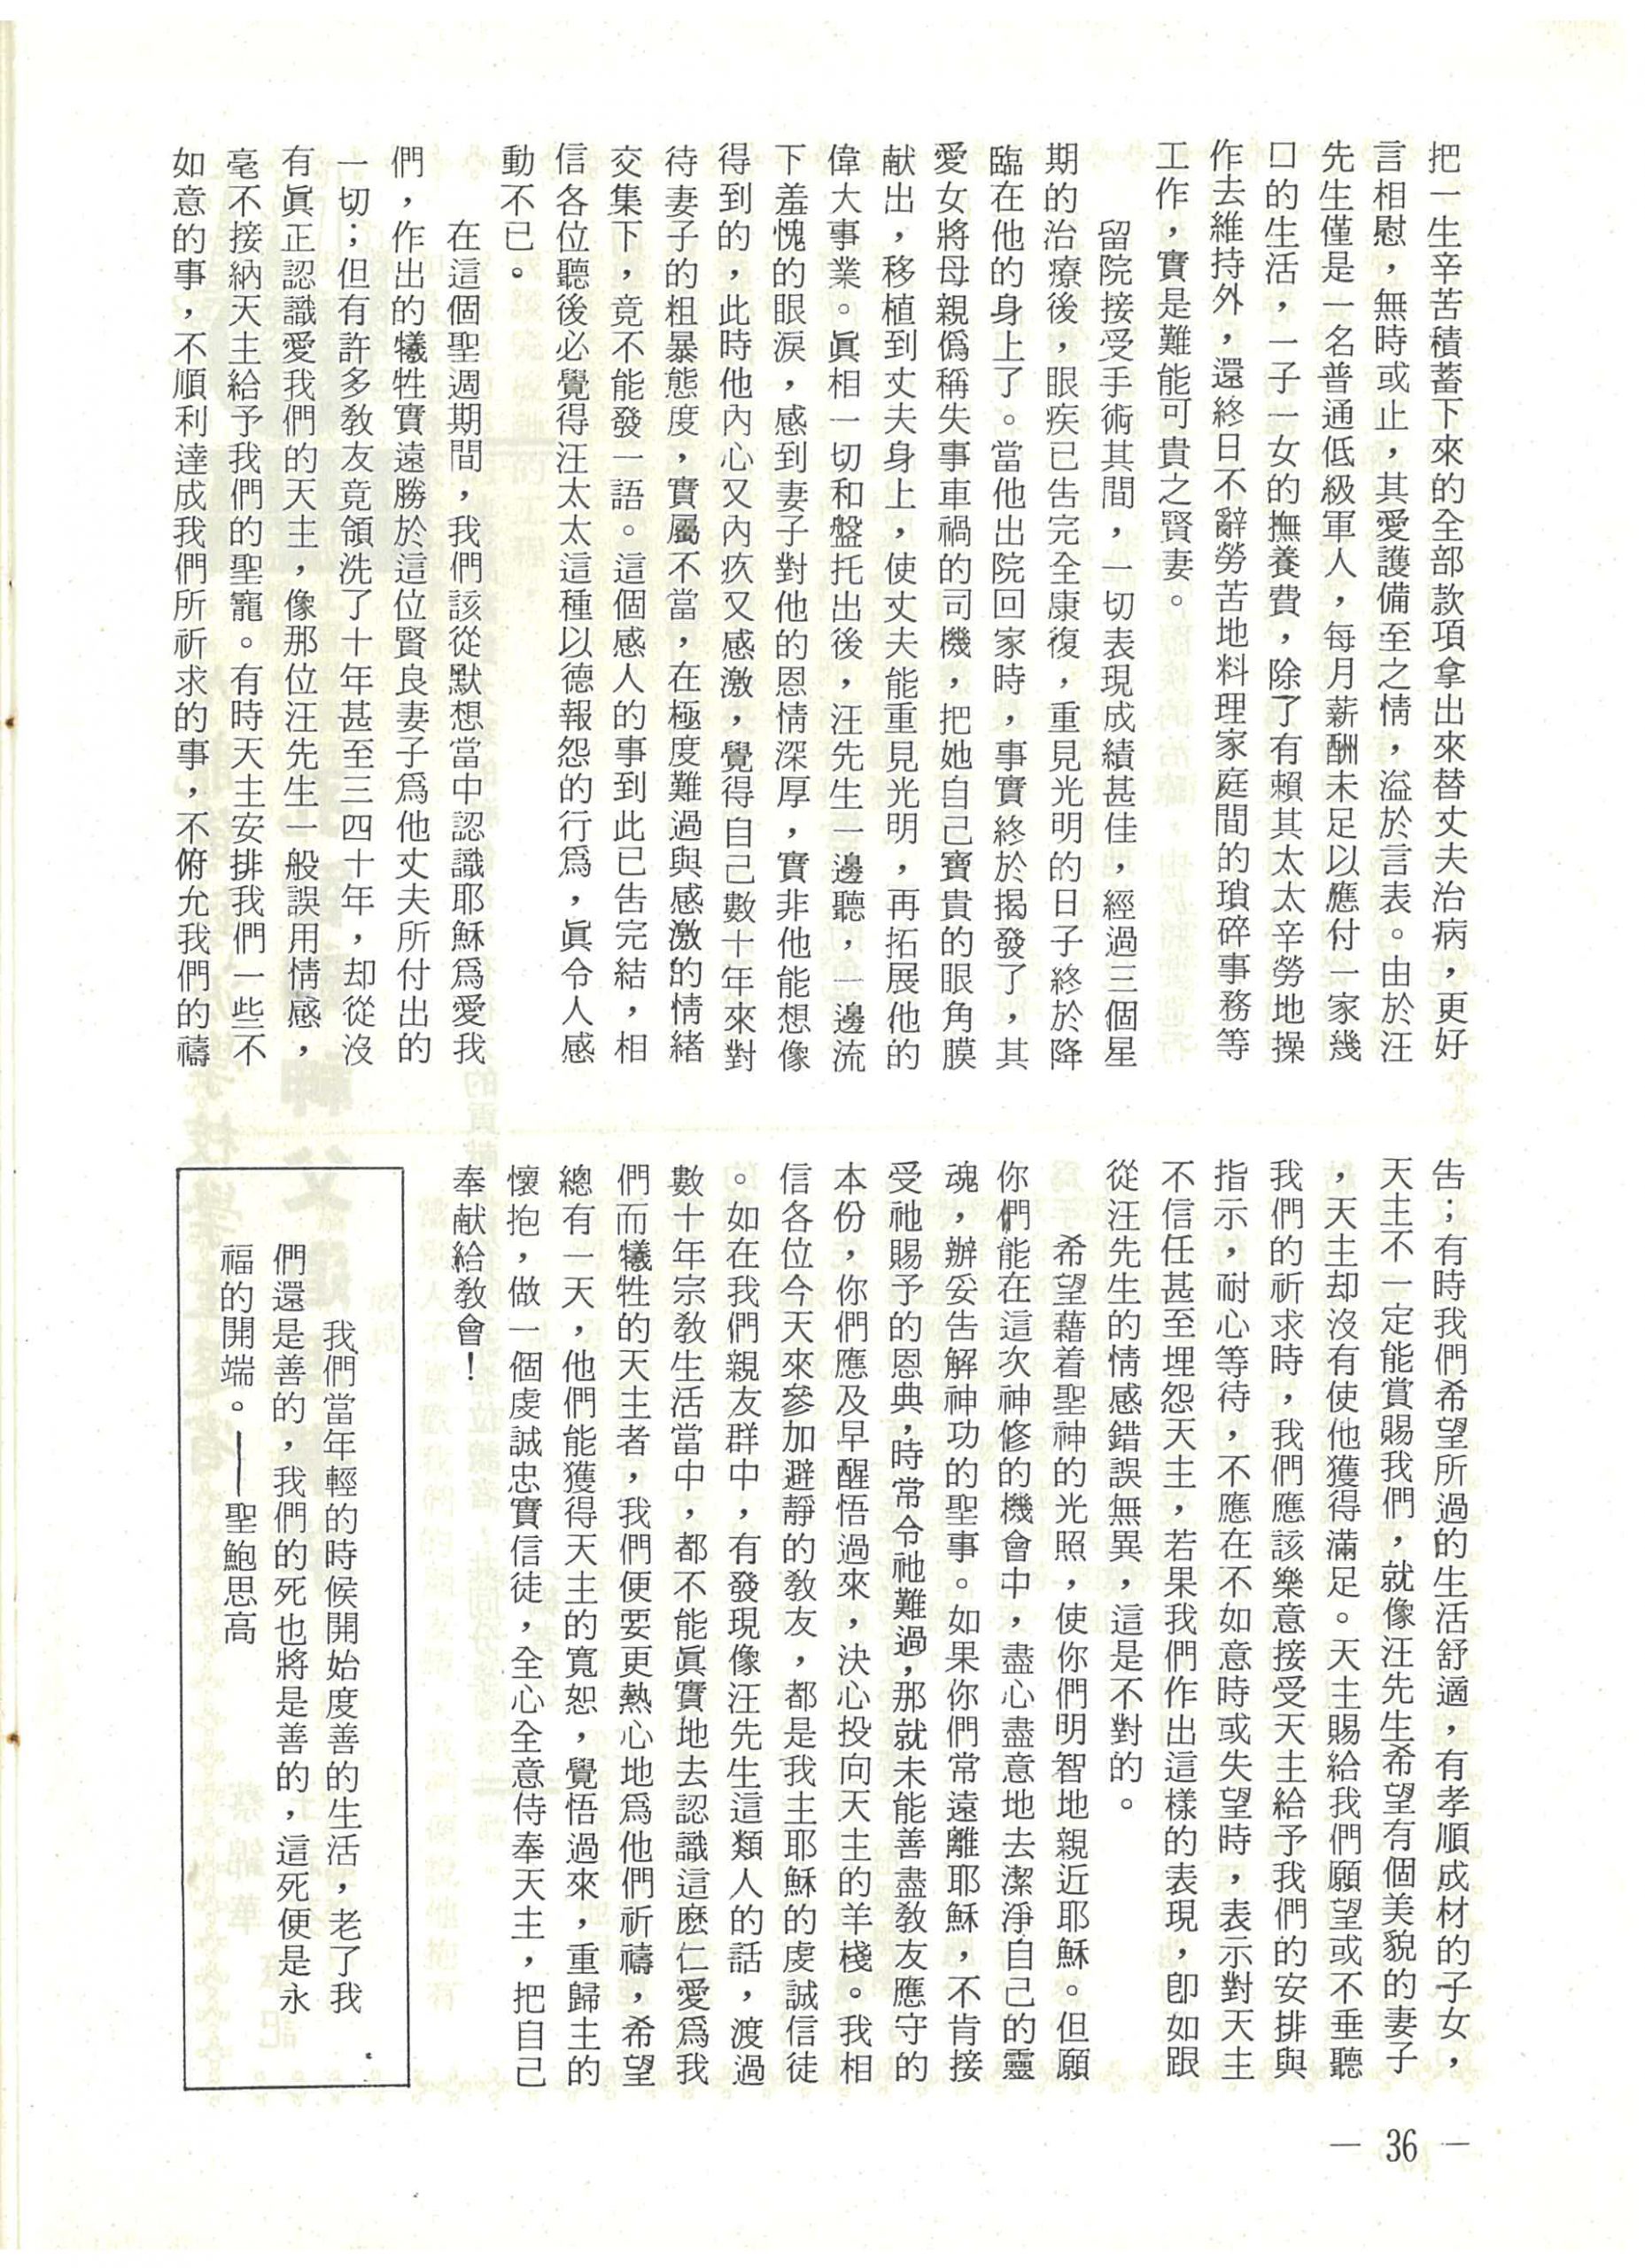 把一生辛苦積蓄下來的全部款項拿出來替丈夫治病，更好
言相慰，無時或止，其愛護備至之情，溢於言表。由於汪
先生僅是一名普通低級軍人，每月薪酬未足以應付一家幾
口的生活，一子一女的撫養費，除了有賴其太太辛勞地操
作去維持外，還終日不辭勞苦地料理家庭間的瑣碎事務等
工作，實是難能可貴之賢妻。
留院接受手術其間，一切表現成績甚佳，經過三個星
期的治療後，眼疾已告完全康復，重見光明的日子終於降
臨在他的身上了。當他出院回家時，事實終於揭發了，其
愛女將母親僞稱失事車禍的司機，把她自己寶貴的眼角膜
献出，移植到丈夫身上，使丈夫能重見光明，再拓展他的
偉大事業。眞相一切和盤托出後，汪先生一邊聽，一邊流
下羞愧的眼淚，感到妻子對他的恩情深厚，實非他能想像
得到的，此時他內心又內疚又感激，覺得自己數十年來對
待妻子的粗暴態度，實屬不當，在極度難過與感激的情緒
交集下，竟不能發一語。這個感人的事到此已告完結，相
信各位聽後必覺得汪太太這種以德報怨的行爲，眞令人感
動不已。
在這個聖週期間，我們該從默想當中認識耶穌爲愛我
們，作出的犧牲實遠勝於這位賢良妻子爲他丈夫所付出的
一切；但有許多敎友竟領洗了十年甚至三四十年，却從沒
有眞正認識愛我們的天主，像那位汪先生一般誤用情感，
毫不接納天主給予我們的聖寵。有時天主安排我們一些不
如意的事，不順利達成我們所祈求的事，不俯允我們的禱
告；有時我們希望所過的生活舒適，有孝順成材的子女，
天主不一定能賞賜我們，就像汪先生希望有個美貌的妻子
，天主却沒有使他獲得滿足。天主賜給我們願望或不垂聽
我們的祈求時，我們應該樂意接受天主給予我們的安排與
指示，耐心等待，不應在不如意時或失望時，表示對天主
不信任甚至埋怨天主，若果我們作出這樣的表現，卽如跟
從汪先生的情感錯誤無異，這是不對的。
希望藉着聖神的光照，使你們明智地親近耶穌。但願
你們能在這次神修的機會中，盡心盡意地去潔淨自己的靈
魂，辦妥告解神功的聖事。如果你們常遠離耶穌，不肯接
受祂賜予的恩典，時常令祂難過，那就未能善盡敎友應守的
本份，你們應及早醒悟過來，決心投向天主的羊棧。我相
信各位今天來參加避靜的敎友，都是我主耶穌的虔誠信徒
。如在我們親友群中，有發現像汪先生這類人的話，渡過
數十年宗敎生活當中，都不能眞實地去認識這麽仁愛爲我
們而犧牲的天主者，我們便要更熱心地爲他們祈禱，希望
總有一天，他們能獲得天主的寬恕，覺悟過來，重歸主的
懷抱，做一個虔誠忠實信徒，全心全意侍奉天主，把自己
奉献給敎會！
我們當年輕的時候開始度善的生活，老了我
們還是善的，我們的死也將是善的，這死便是永
福的開端。——聖鮑思高
— 36 —